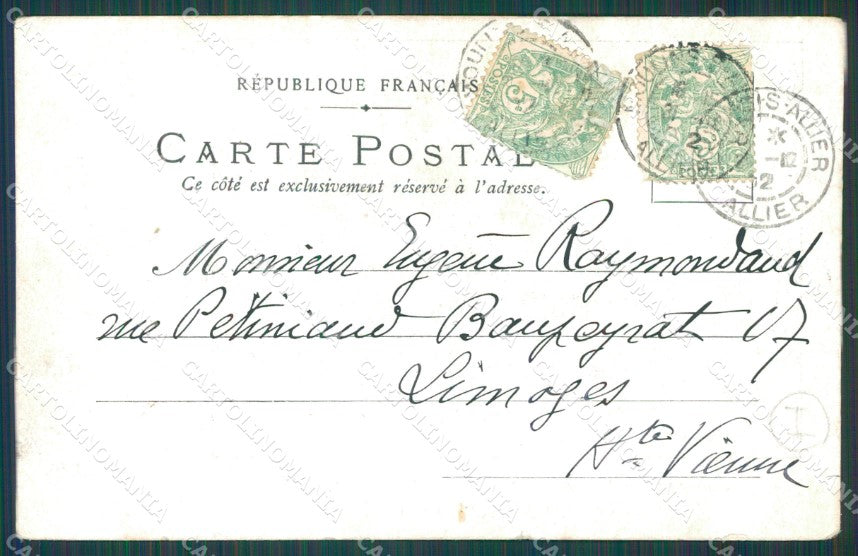 RÉPUBLIQUE FRANÇAIS
CARTE POSTAL
Ce côté est exclusivement réservé à l'adresse.
Monsieur Eugène Raymondaud
rue Pétiniaud Baupeyrat 17
Limoges
Hte Vienne
5
MOULINS-S-ALLIER
ALLIER
CARTOLINOMANIA